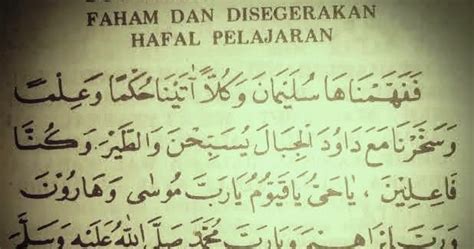 FAHAM DAN DISEGERAKAN
HAFAL PELAJARAN
فَفَهَّمْنَاهَا سُلَيْمَانَ وَكُلًّا آتَيْنَا حُكْمًا وَعِلْمًا
وَسَخَّرْنَا مَعَ دَاوُدَ الْجِبَالَ يُسَبِّحْنَ وَالطَّيْرَ وَكُنَّا
فَاعِلِيْنَ ، يَاحَيُّ يَاقَيُّوْمُ يَارَبَّ مُوسٰى وَهَارُوْنَ
وَرَبَّ اِبْرَاهِيْمَ وَيَارَبَّ مُحَمَّدٍ صَلَّى اللهُ عَلَيْهِ وَسَلَّمَ